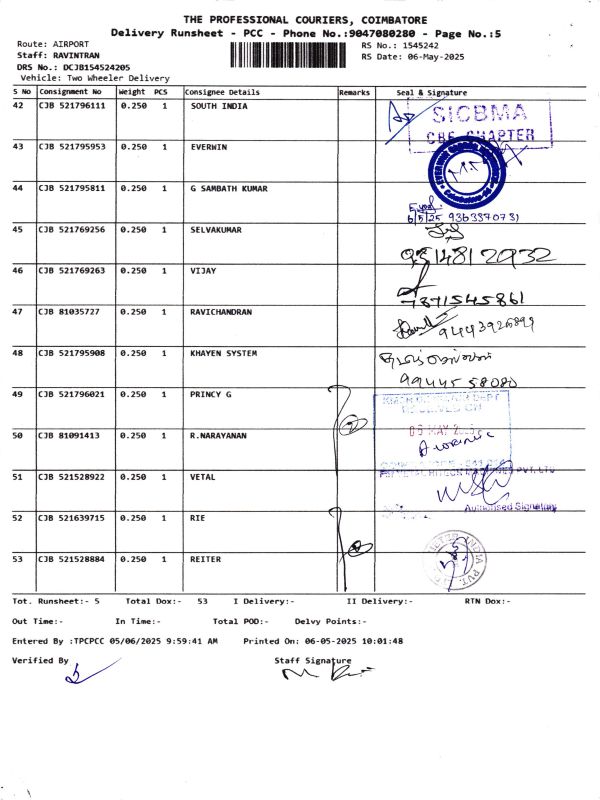 THE PROFESSIONAL COURIERS, COIMBATORE
Delivery Runsheet - PCC - Phone No.:9047080280 - Page No.:5
Route: AIRPORT
RS No.: 1545242
Staff: RAVINTRAN
RS Date: 06-May-2025
DRS No.: DCJB154524205
Vehicle: Two Wheeler Delivery
S No Consignment No Weight PCS Consignee Details Remarks Seal & Signature
42 CJB 521796111 0.250 1 SOUTH INDIA
SICBMA
CBE CHAPTER
43 CJB 521795953 0.250 1 EVERWIN
44 CJB 521795811 0.250 1 G SAMBATH KUMAR
6/5/25 9363370731
45 CJB 521769256 0.250 1 SELVAKUMAR
9514812932
46 CJB 521769263 0.250 1 VIJAY
7871545861
47 CJB 81035727 0.250 1 RAVICHANDRAN
9443926899
48 CJB 521795908 0.250 1 KHAYEN SYSTEM
99445 58080
49 CJB 521796021 0.250 1 PRINCY G
RECEIVED ON
50 CJB 81091413 0.250 1 R.NARAYANAN
51 CJB 521528922 0.250 1 VETAL
PVT. LTD
Authorised Signatory
52 CJB 521639715 0.250 1 RIE
53 CJB 521528884 0.250 1 REITER
Tot. Runsheet:- 5 Total Dox:- 53 I Delivery:- II Delivery:- RTN Dox:-
Out Time:- In Time:- Total POD:- Delvy Points:-
Entered By :TPCPCC 05/06/2025 9:59:41 AM Printed On: 06-05-2025 10:01:48
Verified By Staff Signature